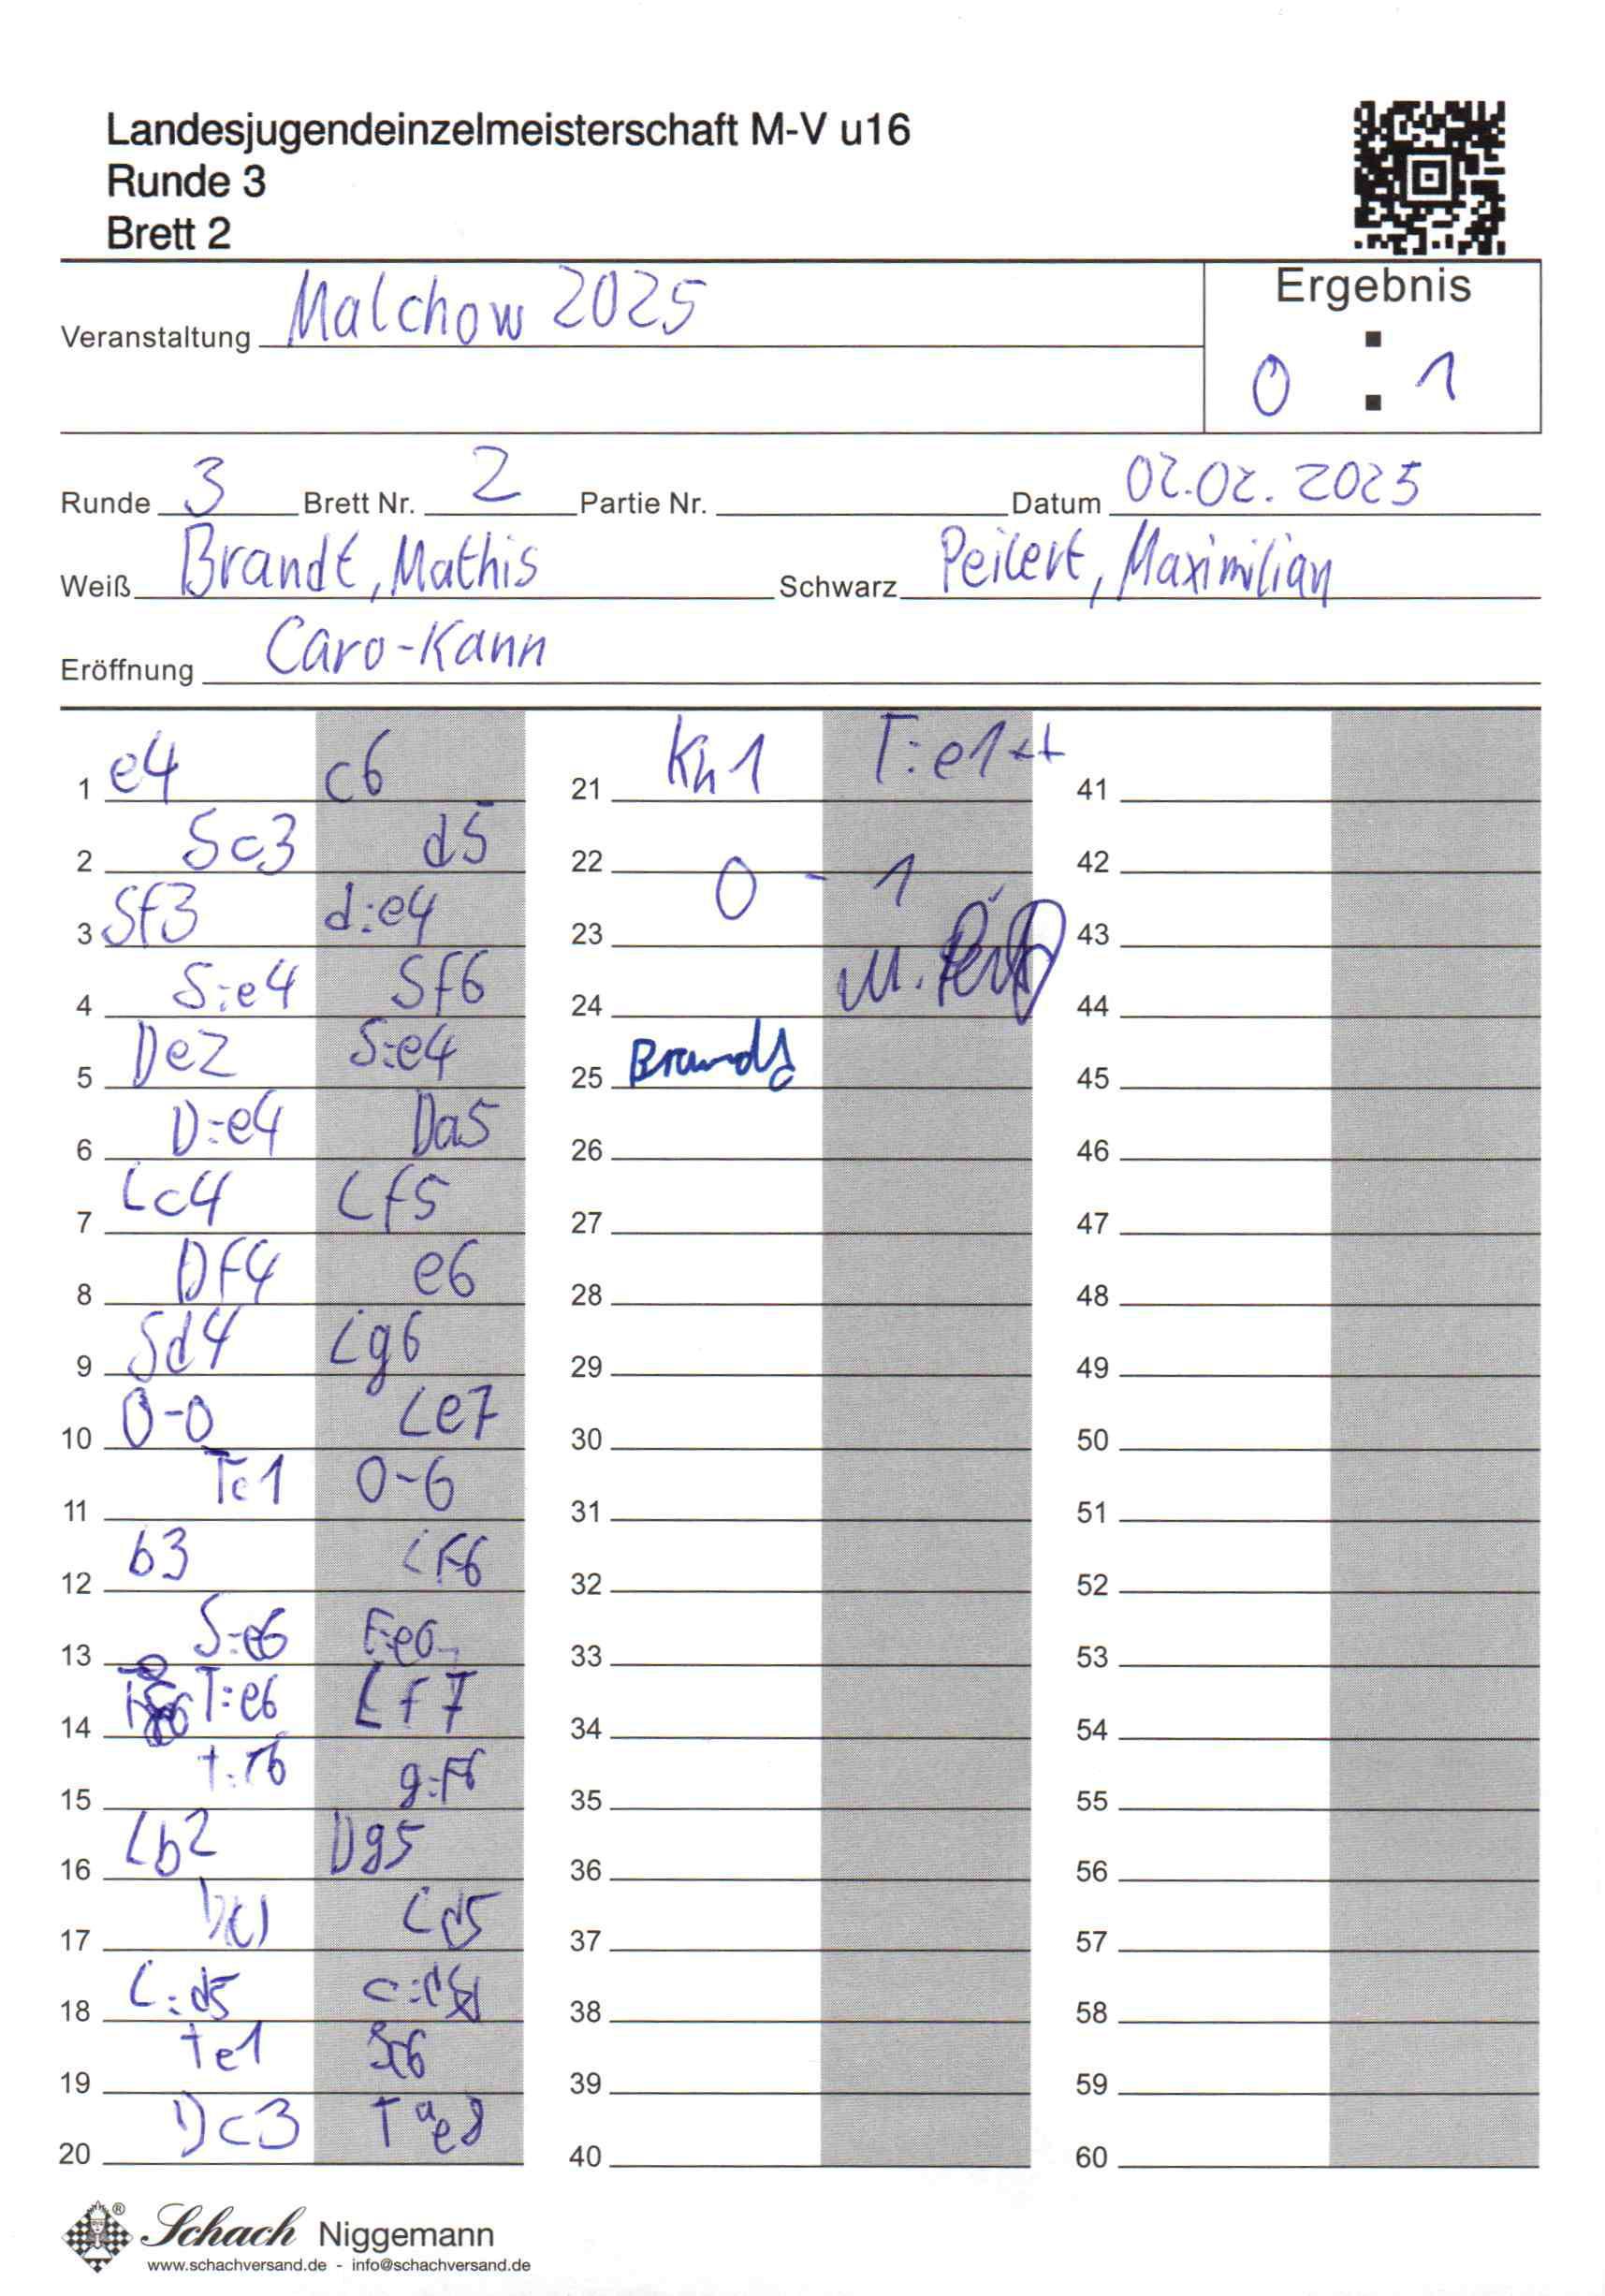 Landesjugendeinzelmeisterschaft M-V u16
Runde 3
Brett 2
Ergebnis
Veranstaltung Malchow 2025
0 : 1
Runde 3 Brett Nr. 2 Partie Nr. Datum 02.02.2025
Weiß Brandt, Mathis Schwarz Peilert, Maximilian
Eröffnung Caro-Kann
1 e4 c6
2 Sc3 d5
3 Sf3 d:e4
4 S:e4 Sf6
5 De2 S:e4
6 D:e4 Da5
7 Lc4 Lf5
8 Df4 e6
9 Sd4 Lg6
10 0-0 Le7
11 Te1 0-0
12 b3 Lf6
13 S:e6 f:e6
14 T:e6 Lf7
15 T:f6 g:f6
16 Lb2 Dg5
17 Ld5
18 L:d5 c:d5
19 Te1 Sc6
20 Dc3 Tae8
21 Kh1 T:e1++
22 0 - 1
23
24 M.
25 Brandt
26
27
28
29
30
31
32
33
34
35
36
37
38
39
40
41
42
43
44
45
46
47
48
49
50
51
52
53
54
55
56
57
58
59
60
Schach Niggemann
www.schachversand.de - info@schachversand.de